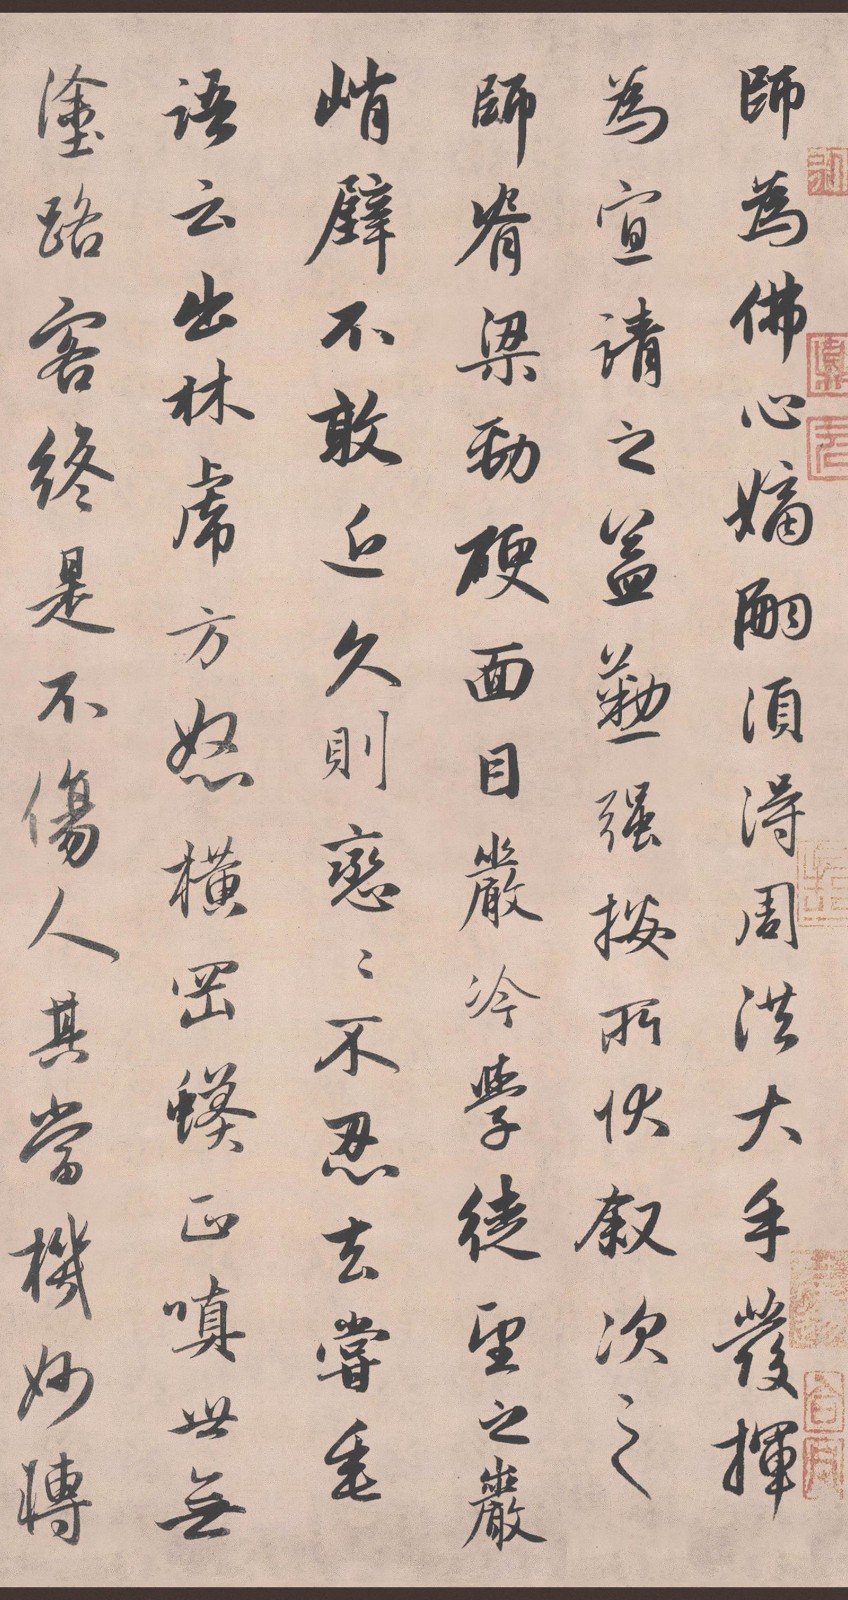 師為佛心嫡嗣須得周洪大手發揮
為宣請之益勤强所伏叙次之
師脊梁勁硬面目嚴冷學徒望之巖
峭壁不敢近久則戀〻不忍去嘗垂
語云出林虎方怒橫岡蟒正嗔世無
塗路客終是不傷人其當機妙轉